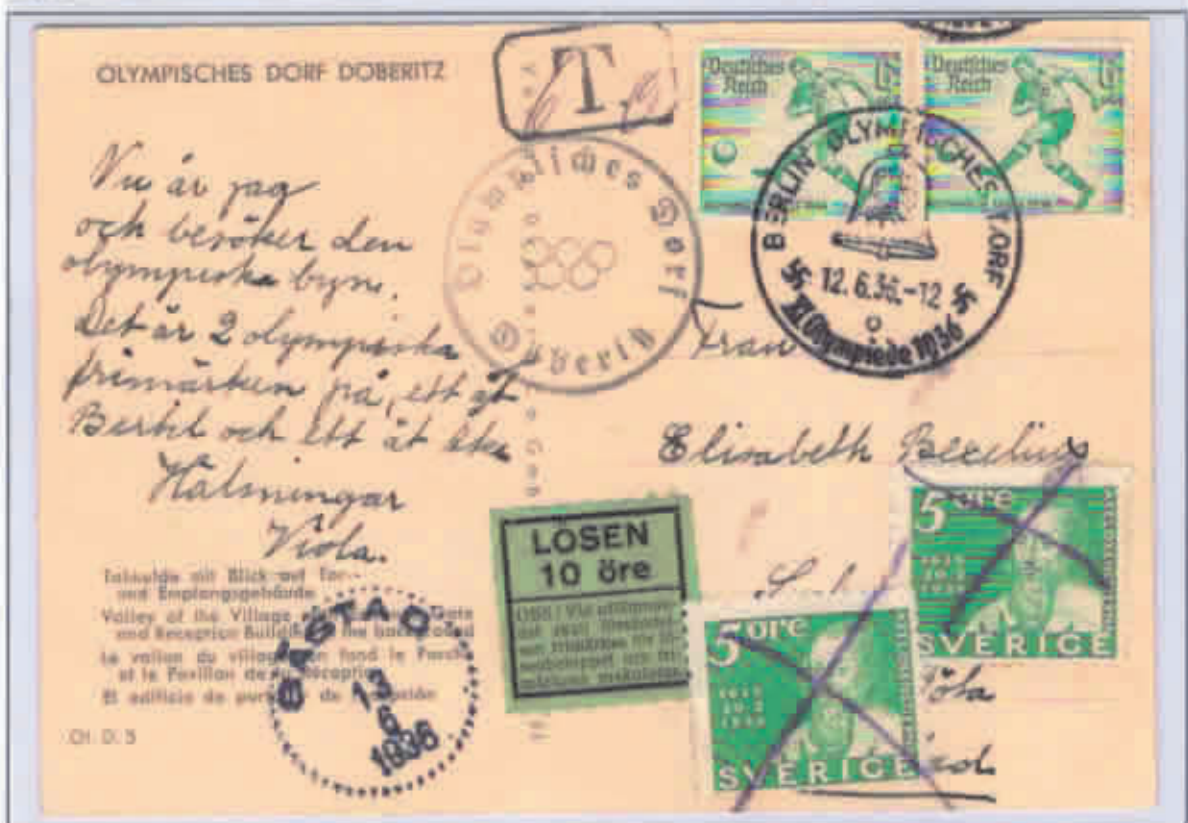 OLYMPISCHES DORF DÖBERITZ
T
Deutsches
Reich
6
Deutsches
Reich
6
Olympisches Dorf
Döberitz
BERLIN OLYMPISCHES DORF
12.6.36.-12
o
XI. Olympiade 1936
Nu är jag
och besöker den
olympiska byn.
Det är 2 olympiska
frimärken på, ett åt
Bertil och ett åt
Hälsningar
Viola.
Frau
Elisabeth
LÖSEN
10 öre
5 öre
SVERIGE
5 öre
SVERIGE
Talmulde mit Blick auf Tor-
und Empfangsgebäude
Valley of the Village
and Reception Building in the background
La vallon du village au fond le Porche
et le Pavillon de Réception
El edificio de de recepción
BÅSTAD
13
6
1936
Ol. D. 5